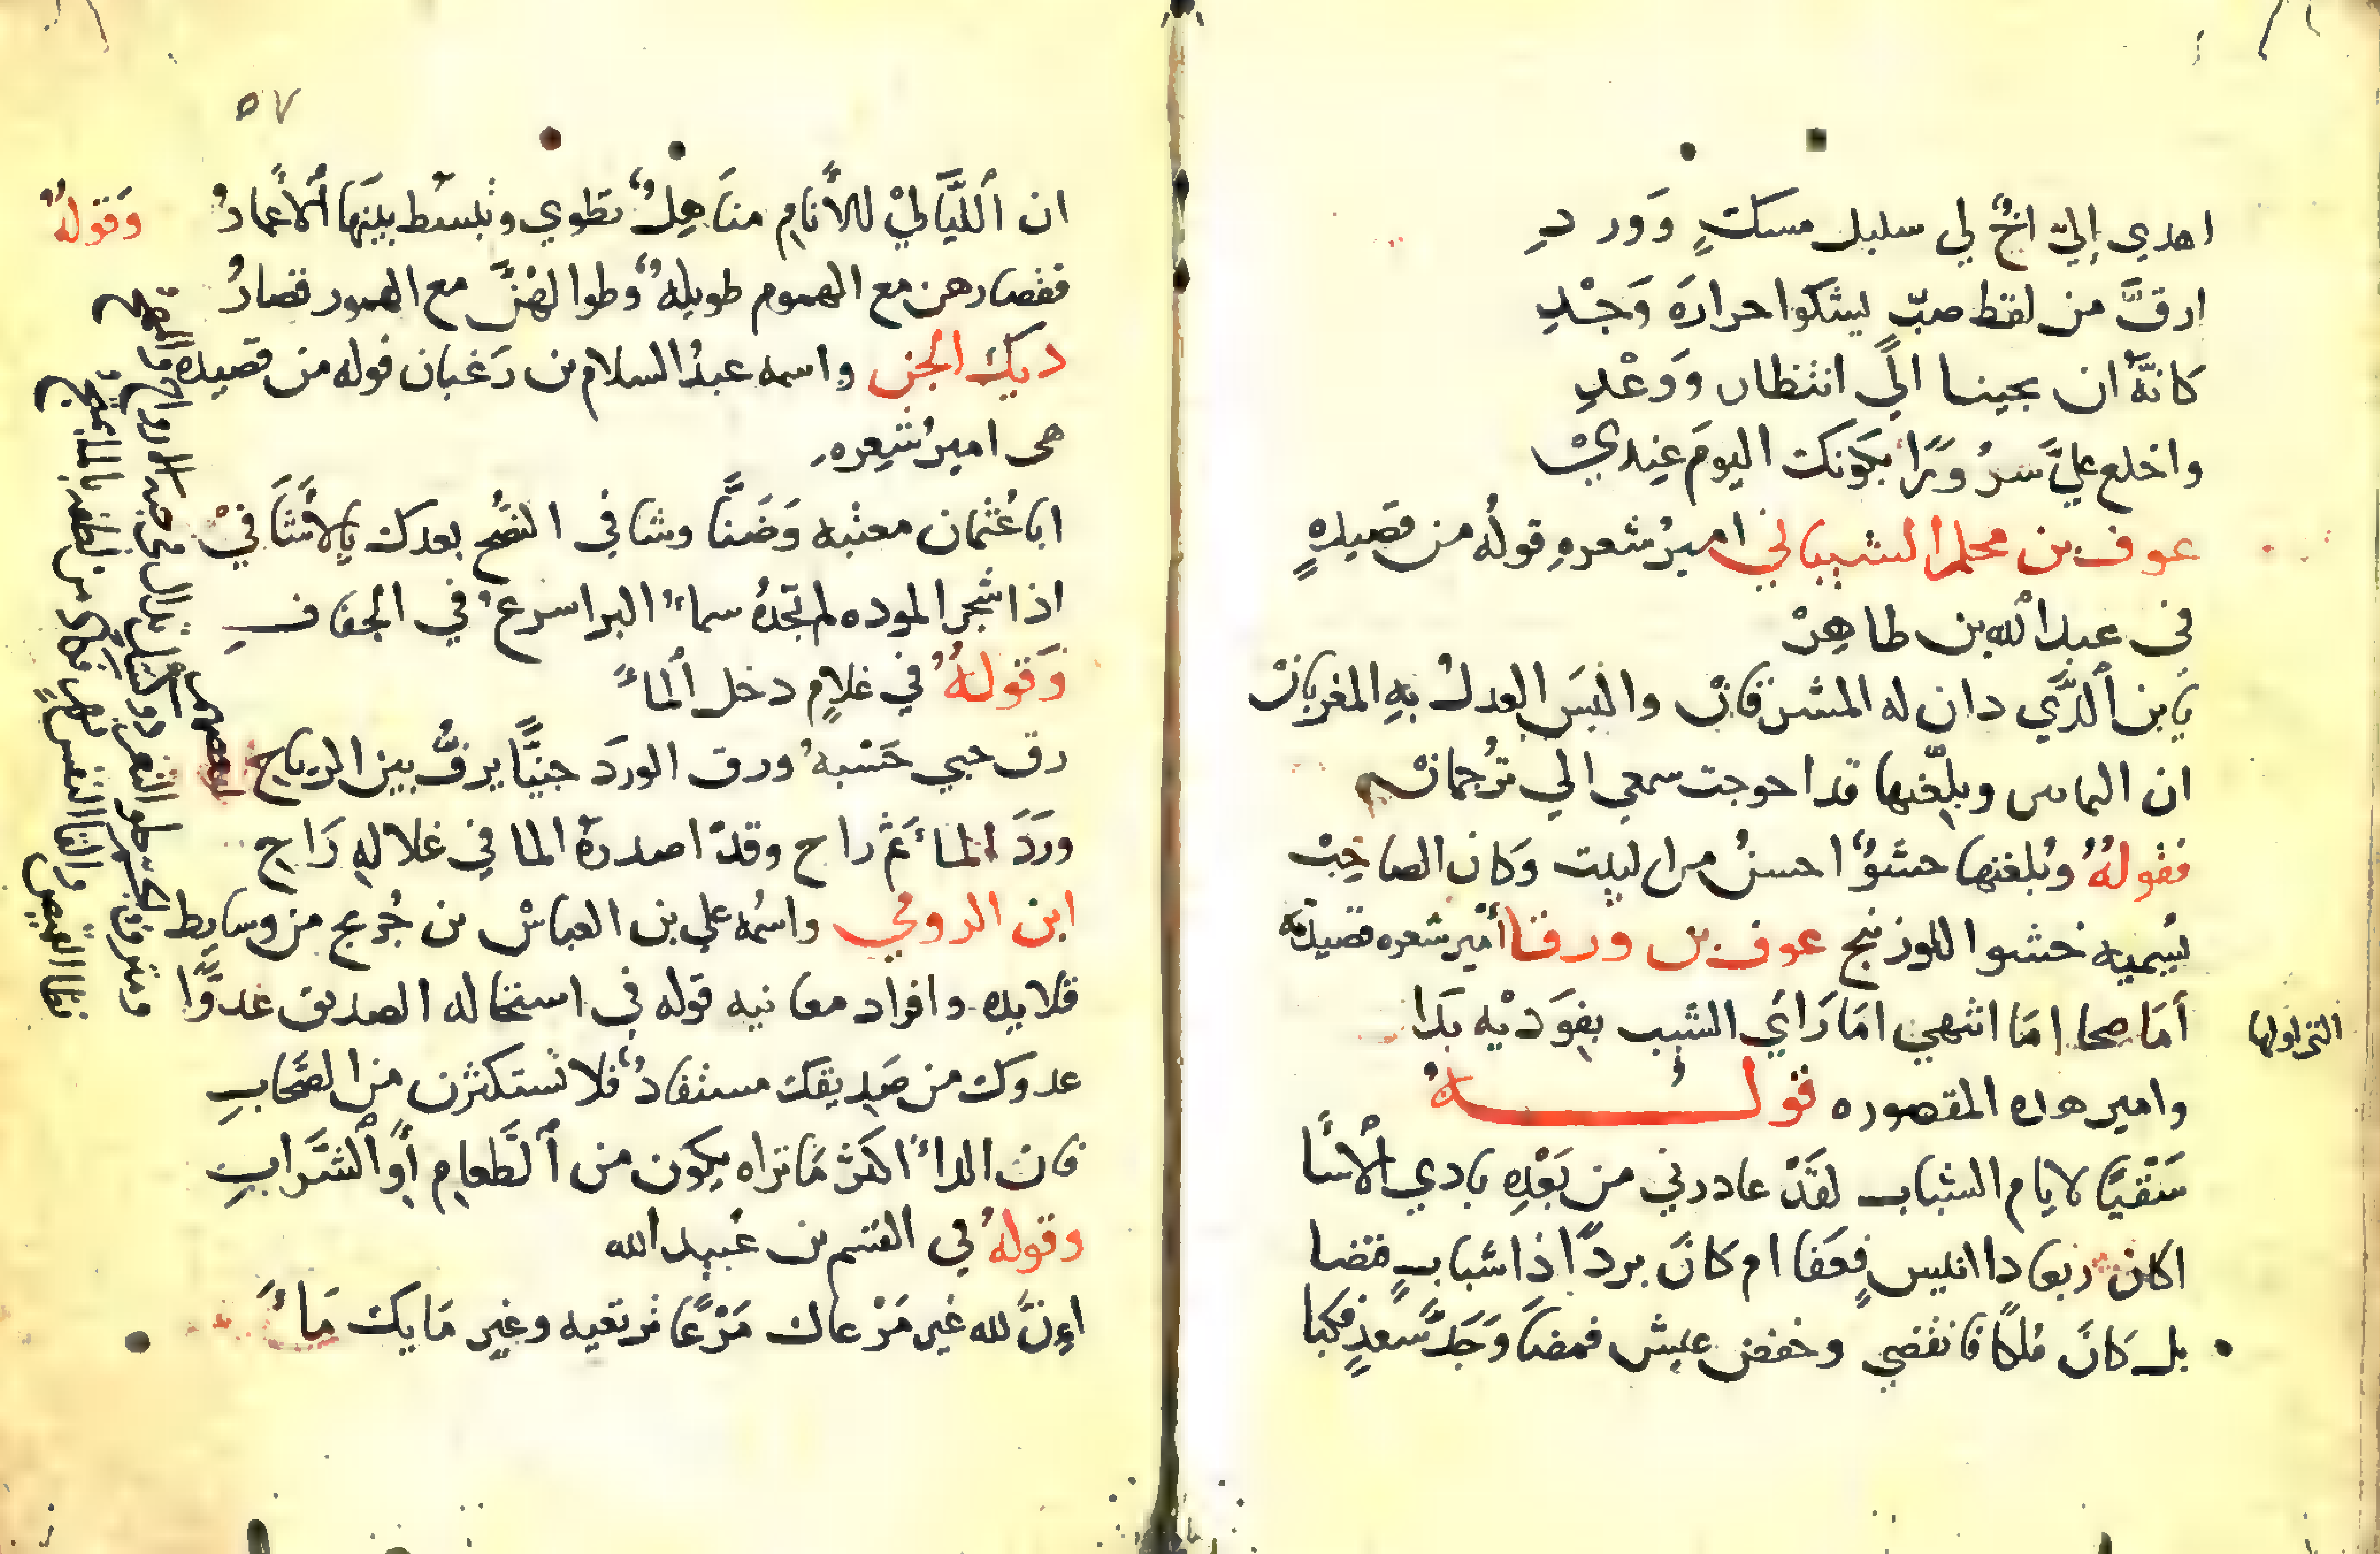 اهدي اِليّ اخٌ لي سليل مسكٍ وَوردِ
ارقَّ من لفظ صبّ ليشكوا حرارةَ وَجْدِ
كانهَّ ان يجينا اليّ انتظار وَوَعْدِ
واخلع عليَّ سرُوَرًا بكَونك اليومَ عِنِديْ
عوف بن محلم الشيباني اميرُ شعرهِ قولُه من قصيدهٍ
في عبد اللّه بن طاهِرْ
يَابن اَلذَّي دان له المشرقانْ والبَس العدلُ بهِ المغربانْ
ان الثمانين وبلِّغتها قد احوجت سمعي الي تُرجمانْ
فقولهُ وبُلغتها حشوٌ احسنُ من ليت وَكان الصاحِبْ
يُسميه خشوا اللوزنيج عوف بن ورقا أمير شعره قصيدته
التي اولها
أمَا صحا امَا انتهي امَا رَاَي الشيب بفِوَديْه بَدَا
وامير هده المقصوره قولــــهُ
سَقْيًا لايام الشباب لقَدْ عادرني من بَعْدِهِ بادي اْلاسَا
اكان ربعا دا انليس فعَفا ام كَانَ بردًا ذا شبابٍ فنضا
بل كَانَ مُلكًا فانقضي وخفض عيش فمضَا وَجَدَّ سعدٍ فكبا
٥٧
ان اَللَّيَاليْ للاَنامِ منَاهِلٌ تطوي وتُبسَط بينَها اَلاعمارُ وَقولهُ
فقصارهن مع الهموم طويلهٌ وطوالهُنَّ مع السرور قصارُ
ديك الجن واسمه عبدُ السلام بن رَغبان قوله من قصيده
هى اميرُ شِعره
ابا عُثمان معتبه وَضَنًّا وشافي النُصح بعدك يالاَشَافيْ
اذا شجر الموده لم تجدهُ سماءُ البر اسرعُ في الجفافِ
وَقولهُ في غلامٍ دخل اَلماءَ
رق حبي حَسْبهُ ورق الورَد جنيًّا يرفُّ بين الرياحِ
ورَدَ الماءَ ثم راح وقدْ اصدرهُ الما في غلالهِ رَاحِ
ابن الرومي واسمُه علي بن العباسْ بن جُريج من وسايط
قلايده وافراد معانيه قوله في استحاله الصديق عدوًّا
عدوك من صَدِيقك مستفادٌ فلا تستكثرن من الصَحابِ
فان الداءَ اكثر مَا تراه يكون من اَلطَّعامِ أَو اَلشَّرابِ
وقولهُ في القسم بن عُبيد الله
اِنَّ لله غير مَرْعاك مَرْعًا نرتعيه وغير مَايك مَاءَ